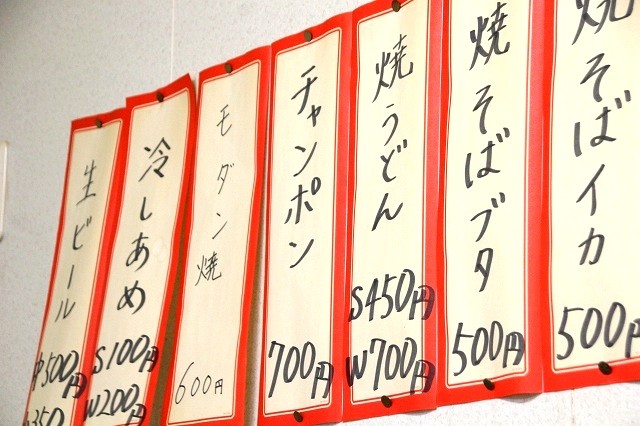 焼そばイカ
500円
焼そばブタ
500円
焼うどん
S450円
W700円
チャンポン
700円
モダン焼
600円
冷しあめ
S100円
W200円
生ビール
500円
350